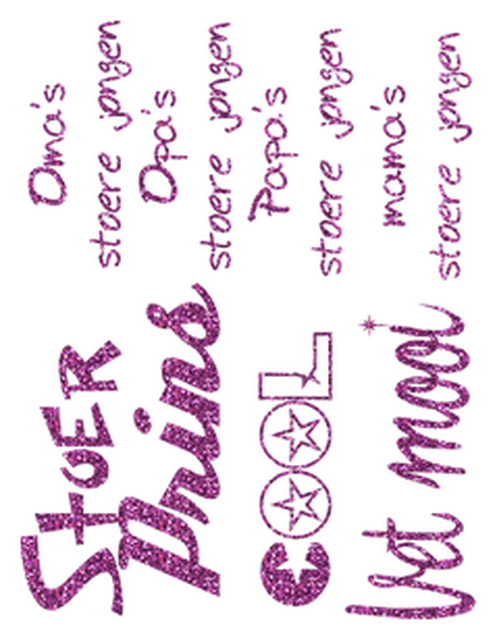 StoER
Prins
COOL
Vet mooi
Oma's
stoere jongen
Opa's
stoere jongen
Papa's
stoere jongen
mama's
stoere jongen